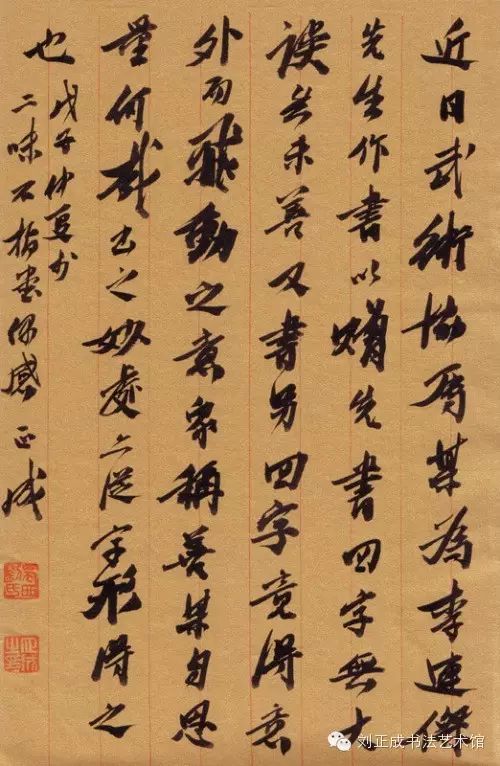 近日武術協屬某為李連傑
先生作書以贈先書四字無大
誤然未善又書另四字竟得意
外而飛動之意象稱善某自思
量何哉書之妙處亦從字形得之
也
戊子仲夏於
二味不指堂偶感 正成
刘正成书法艺术馆